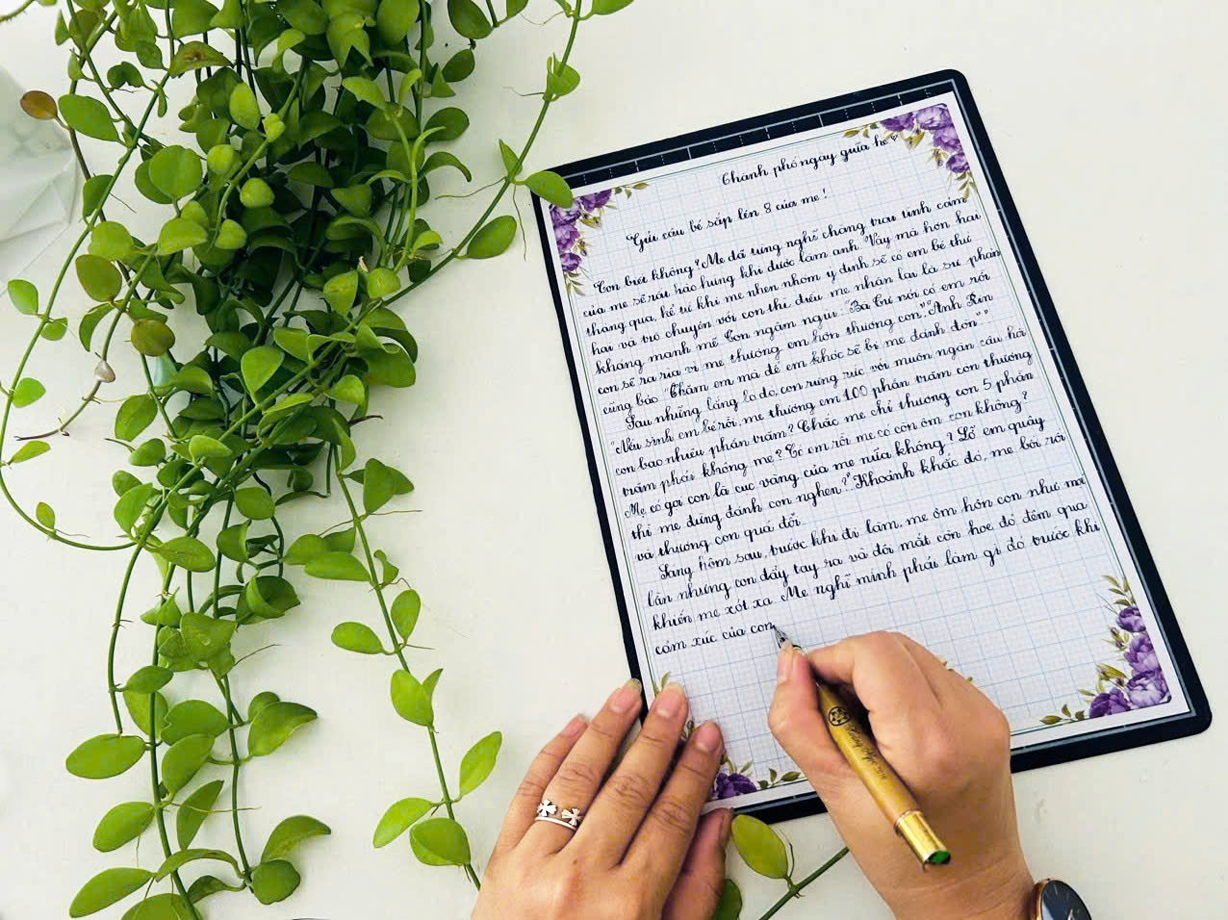 Thành phố ngày giữa hè
Gửi cậu bé sắp lên 8 của mẹ!
Con biết không? Mẹ đã từng nghĩ chàng trai tình cảm
của mẹ sẽ rất hào hứng khi được làm anh. Vậy mà hơn hai
tháng qua, kể từ khi mẹ nhen nhóm ý định sẽ có em bé thứ
hai và trò chuyện với con thì điều mẹ nhận lại là sự phản
kháng mạnh mẽ. Con ngậm ngùi: "Bà Trẻ nói có em rồi
con sẽ ra rìa vì mẹ thương em hơn thương con". "Anh Rin
cũng bảo "Chăm em mà để em khóc sẽ bị mẹ đánh đòn"".
Sau những lắng lo đó, con rúng rúc với muôn ngàn câu hỏi
"Nếu sinh em bé rồi, mẹ thương em 100 phần trăm còn thương
con bao nhiêu phần trăm? Chắc mẹ chỉ thương con 5 phần
trăm phải không mẹ? Có em rồi mẹ có còn ôm con không?
Mẹ có gọi con là cục vàng của mẹ nữa không? Lỡ em quậy
thì mẹ đừng đánh con nghen?" Khoảnh khắc đó, mẹ bối rối
và thương con quá đỗi.
Sáng hôm sau, trước khi đi làm, mẹ ôm hôn con như mọi
lần nhưng con đẩy tay ra và đôi mắt còn hoe đỏ đêm qua
khiến mẹ xót xa. Mẹ nghĩ mình phải làm gì đó trước khi
cảm xúc của con